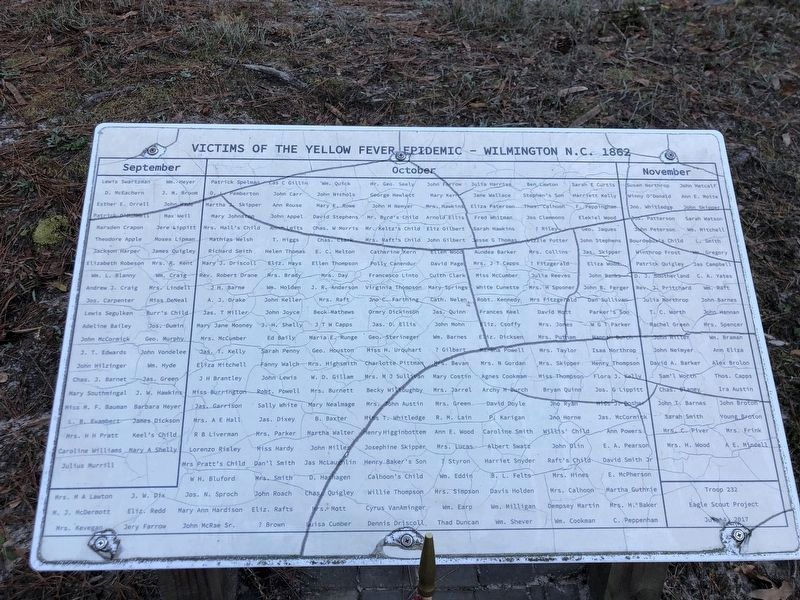 VICTIMS OF THE YELLOW FEVER EPIDEMIC - WILMINGTON N.C. 1862
September October November
Lewis Swartzman Wm. Meyer Patrick Spelman Cas C Gillin Wm. Quick Mr. Geo. Seely John Farrow Julia Harriss Ben Lawton Sarah E Curtis Susan Northrop John Metcalf
D. McEachern J. M. Broom Pemberton John Carr John Nichols George Hewlett Mary Kerns Jane Wallace Stephen's Son Harriett Kelly Vinny O'Donald Ann E. Motte
Esther E. Orrell John Martha Skipper Ann Rouse Mary E. Rowe John H Hewyer Mrs. Hawkins Eliza Paterson Thos. Calhoun F. Peppingham Jno. Whitledge John Skipper
Patrick Max Weil Mary Johnston John Appel David Stephens Mr. Byrd's Child Arnold Ellis Fred Whitman Jos Clemmons Elekiel Wood Patterson Sarah Watson
Marsden Crapon Jere Lippitt Mrs. Hall's Child Chas. W Morris Mr. Keltz's Child Eliz Gilbert Sarah Hawkins ? Riley Geo. Jaques John Peterson Wm. Mitchell
Theodore Apple Moses Lipman Mathias Welsh T. Higgs Chas. Clark Mrs. Raft's Child John Gilbert Jesse G Thomas Lizzie Potter John Stephens Bourdeaux's Child L. Smith
Jackson Harper James Quigley Richard Smith Helen Thomas E. C. Melton Catherine Kern Ellen Wood Nundea Barker Mrs. Collins Jas. Skipper Winthrop Frost Wm. Gregory
Elizabeth Robeson Mrs. A. Kent Mary J. Driscoll Eliz. Hays Ellen Thompson Polly Canendur David Page Mrs. J T Capps I Fitzgerald Eliza Wood Patrick Quigley Jas Campbell
Wm. L. Blanny Wm. Craig Rev. Robert Drane Mrs. Brady Mrs. Day Francesco Linto Quith Clark Miss McCumber Julia Reeves John Banks D. J. Southerland C. A. Yates
Andrew J. Craig Mrs. Lindell J H. Barne Wm. Holden J. R. Anderson Virginia Thompson Mary Springs White Cunette Mrs. W Spooner John B. Ferger Rev. J. Pritchard Wm. Raft
Jos. Carpenter Miss DeNeal A. J. Drake John Keller Mrs. Raft Jno C. Farthing Cath. Helen Robt. Kennedy Mrs Fitzgerald Dan Sullivan Julia Northrop John Barnes
Lewis Segulken Burr's Child Jas. T Miller John Joyce Beck Mathews Orrey Dickinson Jas. Quinn Frances Keel David Mott Parker's Son T. C. Worth John Hannan
Adeline Bailey Jos. Dumin Mary Jane Mooney J. H. Shelly J T W Capps Jas. D. Ellis John Mohn Eliz. Csoffy Mrs. Jones W G T Parker Rachel Green Mrs. Spencer
John McCormick Geo. Murphy Mrs. McCumber Ed Baily Maria E. Runge Geo. Steringer Wm. Barnes Eliz. Dicksen Mrs. Putnam Hannah Burch John Miller Wm. Braman
J. T. Edwards John Vondelee Jas. T. Kelly Sarah Penny Geo. Houston Miss H. Urquhart ? Gilbert Powell Mrs. Taylor Isaa Northrop John Nemayer Ann Eliza
John Hilzinger Wm. Hyde Eliza Mitchell Fanny Walch Mrs. Highsmith Charlotte Pittman Mrs. Bevan Mrs. N Gordan Mrs. Skipper Henry Thompson David A. Barker Alex Brolon
Chas. J. Barnet Jas. Green J H Brantley John Lewis W. D. Gillam Mrs. M J Sullivan Mary Costin Agnes Cookman Miss Thompson Flora J. Kelly Sam'l Worth Thos. Capps
Mary Southmingal J. W. Hawkins Miss Burrington Robt. Powell Mrs. Burnett Becky Willoughby Mrs. Jarrel Archy M Burch Bryan Quinn Jos. G Lippitt Chas. Blaney Ira Austin
Miss M. F. Bauman Barbara Heyer Jas. Garrison Sally White Mary Nealmage Mrs. John Austin Mrs. Green David Doyle Jno Ryan John I. Barnes John Broton
L. B. Erambert James Dickson Mrs. A E Hall Jas. Dixey B. Baxter Miss T. Whitledge R. M. Lain P. Karigan Jno Horne Jas. McCormick Sarah Smith Young Broton
Mrs. H H Pratt Keel's Child R B Liverman Mrs. Parker Martha Walter Henry Higginbotten Ann E. Wood Caroline Smith Willis' Child Ann Powers Mrs. C. Piver Mrs. Frink
Caroline Williams Mary A Shelly Lorenzo Risley Miss Hardy John Miller Josephine Skipper Mrs. Lucas Albert Swatz John Olin E. A. Pearson Mrs. M. Wood A E. Mindell
Julius Murrill Mrs Pratt's Child Dan'l Smith Jas McLaughlin Henry Baker's Son ? Styron Harriet Snyder Raft's Child David Smith Jr
W H. Bluford Mrs. Smith D. Calhoon's Child Wm. Eddin B. L. Felts Mrs. Hines E. McPherson
Mrs. M A Lawton J. W. Dix Jos. N. Sproch John Roach Chas. Quigley Willie Thompson Mrs. Simpson Davis Holden Mrs. Calhoon Martha Guthrie Troop 232
M. J. McDermott Elig. Redd Mary Ann Hardison Eliz. Rafts Mrs. Mott Cyrus VanAminger Wm. Earp Wm. Milligan Dempsey Martin Mrs. M. Baker Eagle Scout Project
Mrs. Kevegan Jery Farrow John McRae Sr. ? Brown Luisa Cumber Dennis Driscoll Thad Duncan Wm. Shever Wm. Cookman C. Peppenham 2017